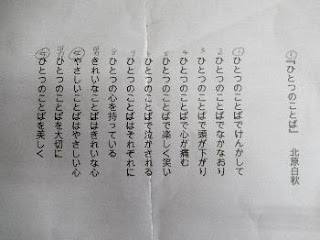 『ひとつのことば』 北原白秋
ひとつのことばでけんかして
2 ひとつのことばでなかなおり
3 ひとつのことばで頭が下がり
4 ひとつのことばで心が痛む
5 ひとつのことばで楽しく笑い
ひとつのことばで泣かされる
7 ひとつのことばはそれぞれに
8 ひとつの心を持っている
きれいなことばはきれいな心
やさしいことばはやさしい心
ひとつのことばを大切に
ひとつのことばを美しく